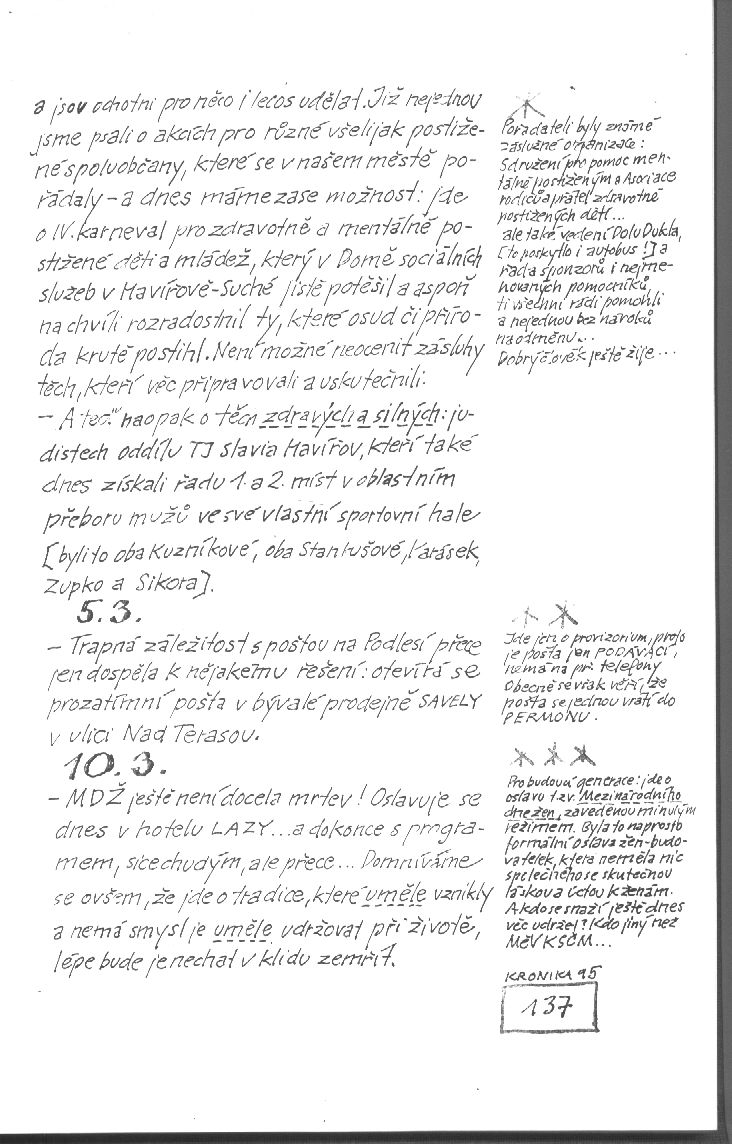 a jsou ochotni pro něco i lecos udělat. Již nejednou
jsme psali o akcích pro různé všelijak postiže-
né spoluobčany, které se v našem městě po-
řádaly – a dnes máme zase možnost: jde
o IV. karneval pro zdravotně a mentálně po-
stižené děti a mládež, který v Domě sociálních
služeb v Havířově-Suché jistě potěšil a aspoň
na chvíli rozradostnil ty, které osud či příro-
da krutě postihl. Není možné neocenit zásluhy
těch, kteří věc připravovali a uskutečnili.
– A teď naopak o těch zdravých a silných: ju-
distech oddílu TJ Slavia Havířov, kteří také
dnes získali řadu 1. a 2. míst v oblastním
přeboru mužů ve své vlastní sportovní hale
[byli to oba Kuzníkové, oba Stankušové, Karásek,
Zupko a Sikora].
5.3.
– Trapná záležitost s poštou na Podlesí přece
jen dospěla k nějakému řešení: otevírá se
prozatímní pošta v bývalé prodejně SAVELY
v ulici Nad Terasou.
10.3.
– MDŽ ještě není docela mrtev! Oslavuje se
dnes v hotelu LAZY... a dokonce s progra-
mem, sice chudým, ale přece... Domníváme
se ovšem, že jde o tradice, které uměle vznikly
a nemá smysl je uměle udržovat při životě,
lépe bude je nechat v klidu zemřít.
Pořadateli byly známé
záslužné organizace:
Sdružení pro pomoc men-
tálně postiženým a Asociace
rodičů a přátel zdravotně
postižených dětí...
ale také vedení Dolu Dukla,
[to poskytlo i autobus!] a
řada sponzorů i nejme-
novaných pomocníků,
ti všichni rádi pomohli
a nejednou bez nároků
na odměnu...
Dobrý člověk ještě žije...
Jde jen o provizorium, proto
je pošta jen PODÁVACÍ,
nemá na př. telefony
Obecně se však věří, že
pošta se jednou vrátí do
PERMONU.
Pro budoucí generace: jde o
oslavu t.zv. Mezinárodního
dne žen, zavedenou minulým
režimem. Byla to naprosto
formální oslava žen-budo-
vatelek, která neměla nic
společného se skutečnou
láskou a úctou k ženám.
A kdo se snaží ještě dnes
věc udržet? Kdo jiný než
MěV KSČM...
KRONIKA 95
137